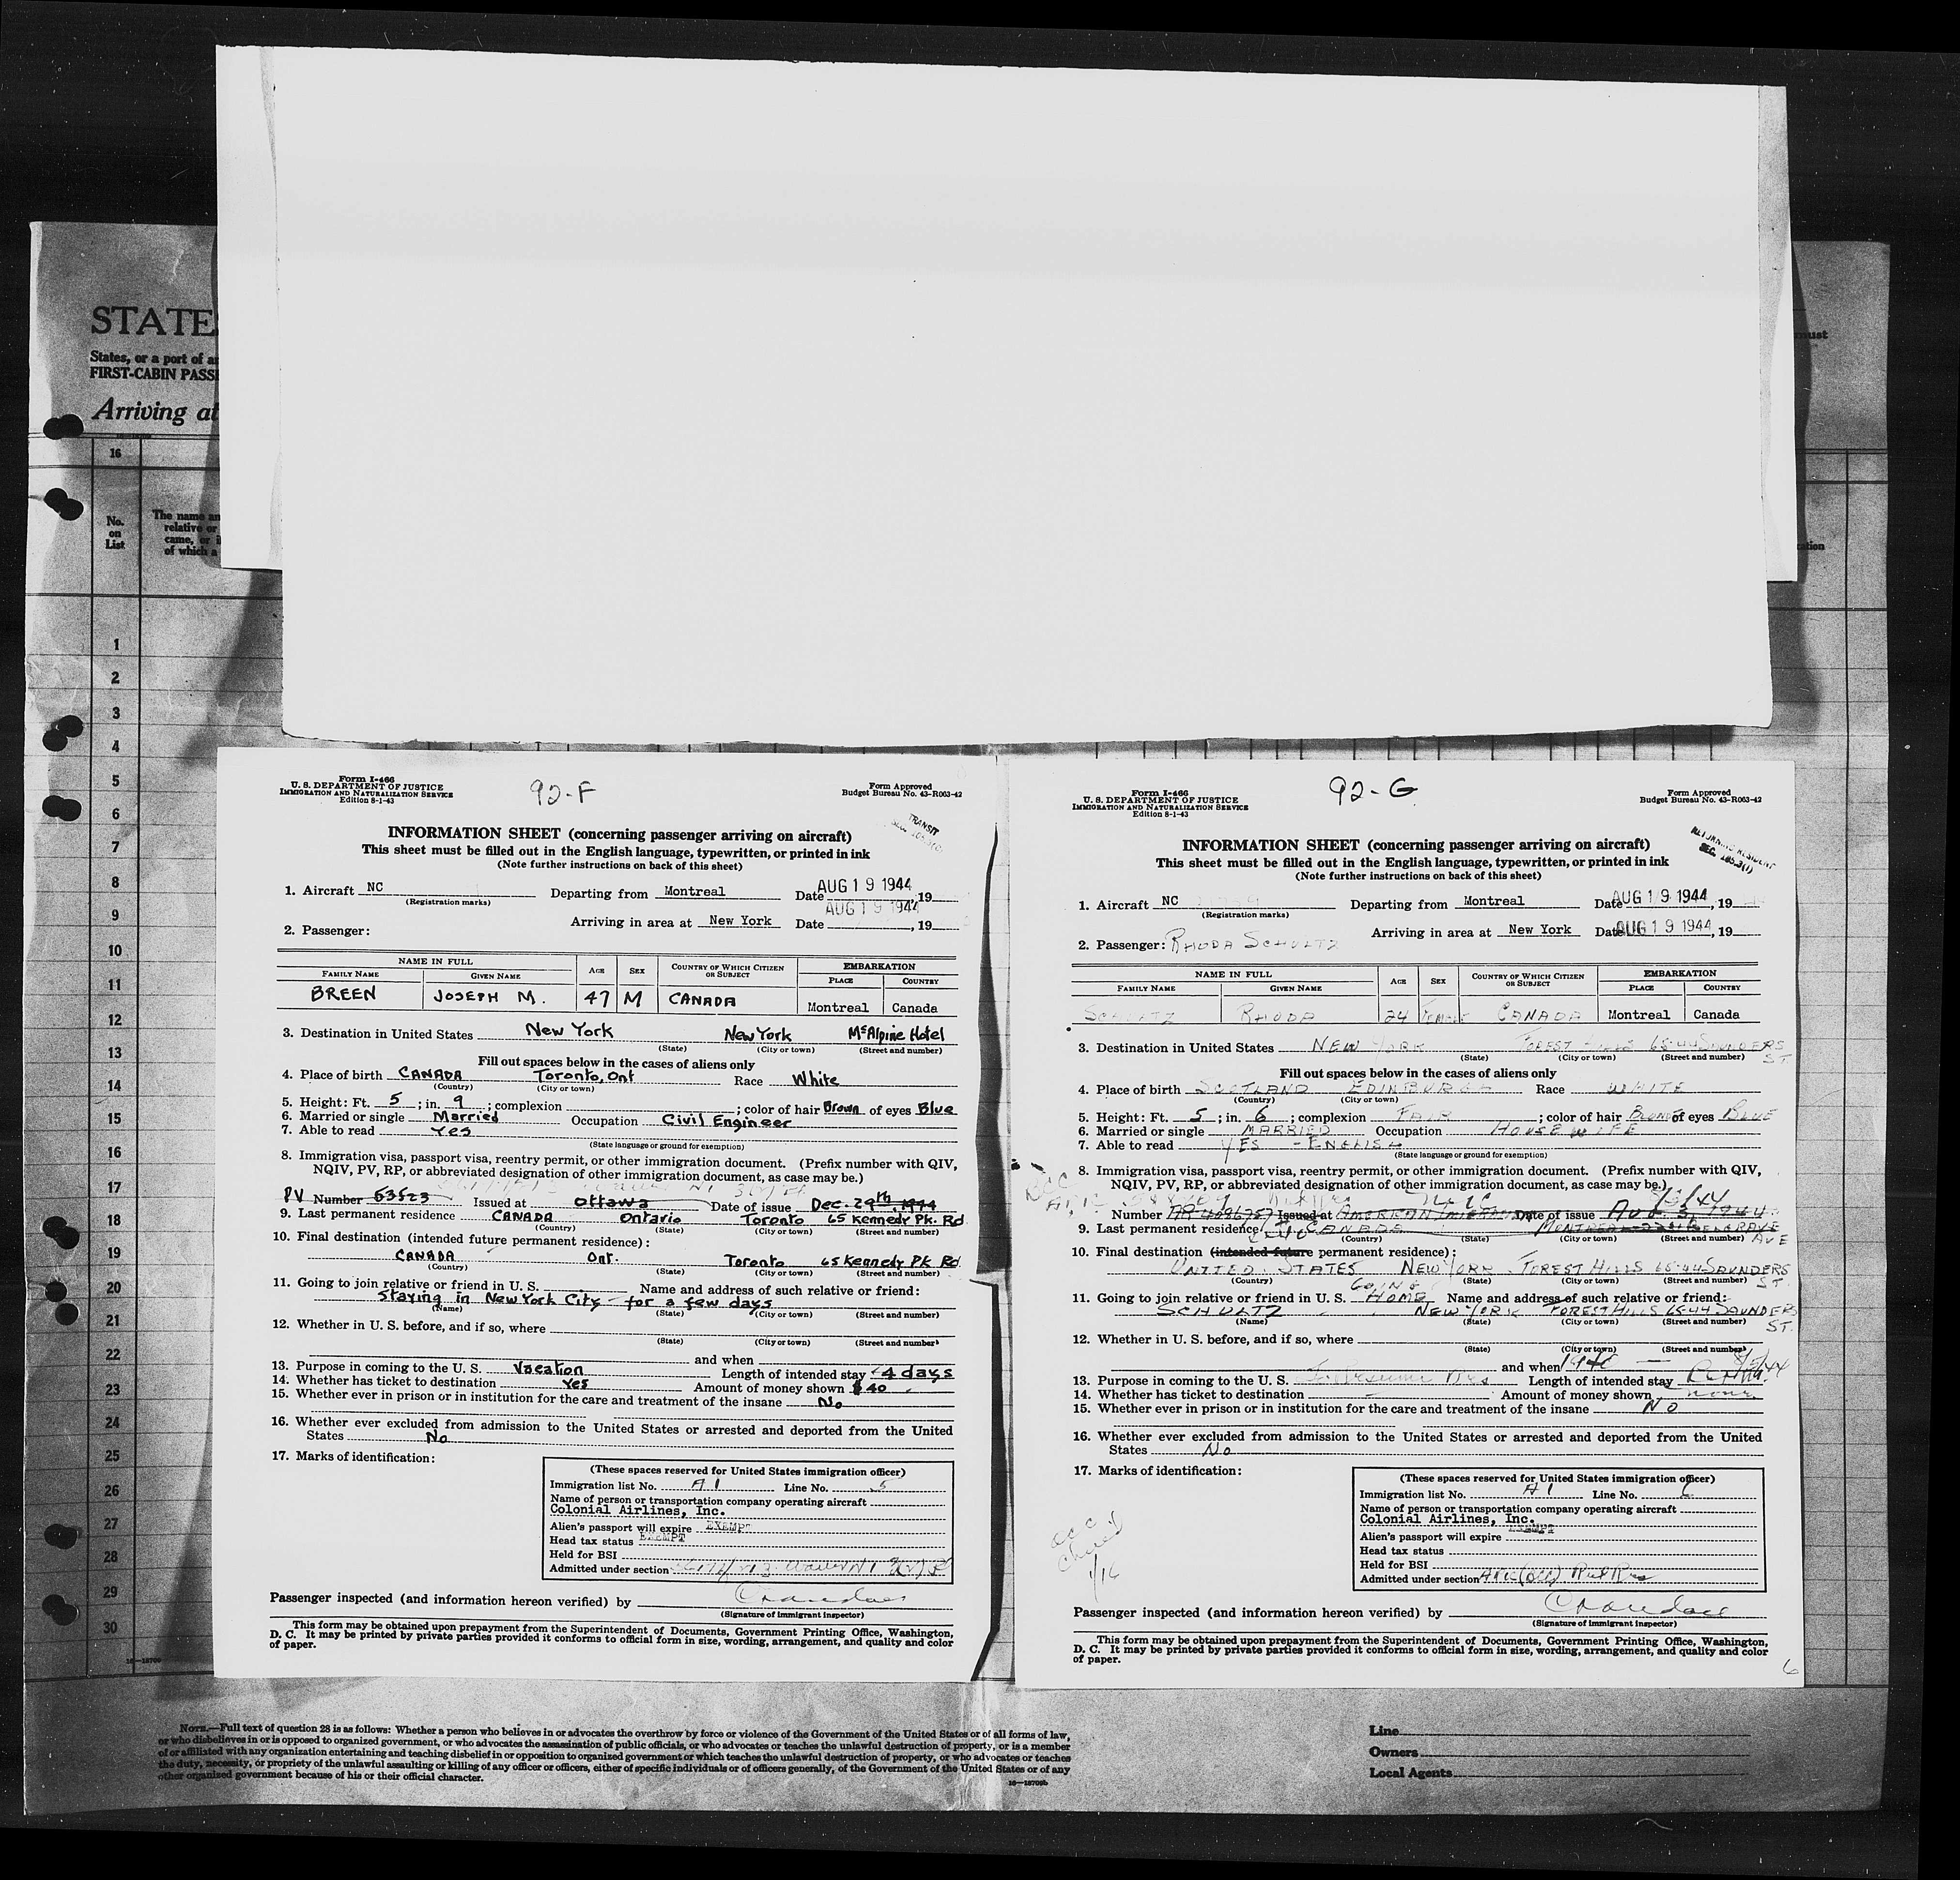 STATE
States, or a port of an
FIRST-CABIN PASS
Arriving at
16
No. on List
The name an
relative or
came, or i
of which a
1
2
3
4
5
6
7
8
9
10
11
12
13
14
15
16
17
18
19
20
21
22
23
24
25
26
27
28
29
30
Form I-466
U. S. DEPARTMENT OF JUSTICE
IMMIGRATION AND NATURALIZATION SERVICE
Edition 8-1-43
92-F
Form Approved
Budget Bureau No. 43-R063-42
TRANSIT
INFORMATION SHEET (concerning passenger arriving on aircraft)
This sheet must be filled out in the English language, typewritten, or printed in ink
(Note further instructions on back of this sheet)
1. Aircraft NC Departing from Montreal Date AUG 19 1944, 19
(Registration marks)
Arriving in area at New York Date AUG 19 1944, 19
2. Passenger:
NAME IN FULL AGE SEX COUNTRY OF WHICH CITIZEN OR SUBJECT EMBARKATION
FAMILY NAME GIVEN NAME PLACE COUNTRY
BREEN JOSEPH M. 47 M CANADA Montreal Canada
3. Destination in United States New York New York McAlpine Hotel
(State) (City or town) (Street and number)
Fill out spaces below in the cases of aliens only
4. Place of birth CANADA Toronto, Ont Race White
(Country) (City or town)
5. Height: Ft. 5; in. 9; complexion ; color of hair Brown of eyes Blue
6. Married or single Married Occupation Civil Engineer
7. Able to read Yes
(State language or ground for exemption)
8. Immigration visa, passport visa, reentry permit, or other immigration document. (Prefix number with QIV,
NQIV, PV, RP, or abbreviated designation of other immigration document, as case may be.)
PV Number 53523 Issued at Ottawa Date of issue Dec. 29th, 1944
9. Last permanent residence CANADA Ontario Toronto 65 Kennedy Pk. Rd
(Country) (State) (City or town) (Street and number)
10. Final destination (intended future permanent residence):
CANADA Ont. Toronto 65 Kennedy Pk Rd
(Country) (State) (City or town) (Street and number)
11. Going to join relative or friend in U. S. Name and address of such relative or friend:
Staying in New York City - for a few days
(Name) (State) (City or town) (Street and number)
12. Whether in U. S. before, and if so, where
(State) (City or town) (Street and number)
and when
13. Purpose in coming to the U. S. Vacation Length of intended stay 4 days
14. Whether has ticket to destination Yes Amount of money shown $40
15. Whether ever in prison or in institution for the care and treatment of the insane No
16. Whether ever excluded from admission to the United States or arrested and deported from the United
States No
17. Marks of identification:
(These spaces reserved for United States immigration officer)
Immigration list No. A 1 Line No. 5
Name of person or transportation company operating aircraft
Colonial Airlines, Inc.
Alien's passport will expire EXEMPT
Head tax status EXEMPT
Held for BSI
Admitted under section
Passenger inspected (and information hereon verified) by
(Signature of immigrant inspector)
This form may be obtained upon prepayment from the Superintendent of Documents, Government Printing Office, Washington,
D. C. It may be printed by private parties provided it conforms to official form in size, wording, arrangement, and quality and color
of paper.
Form I-466
U. S. DEPARTMENT OF JUSTICE
IMMIGRATION AND NATURALIZATION SERVICE
Edition 8-1-43
92-G
Form Approved
Budget Bureau No. 43-R063-42
RETURNING RESIDENT
SEC.
INFORMATION SHEET (concerning passenger arriving on aircraft)
This sheet must be filled out in the English language, typewritten, or printed in ink
(Note further instructions on back of this sheet)
1. Aircraft NC Departing from Montreal Date AUG 19 1944, 19
(Registration marks)
Arriving in area at New York Date AUG 19 1944, 19
2. Passenger: RHODA SCHULTZ
NAME IN FULL AGE SEX COUNTRY OF WHICH CITIZEN OR SUBJECT EMBARKATION
FAMILY NAME GIVEN NAME PLACE COUNTRY
SCHULTZ RHODA 24 FEMALE CANADA Montreal Canada
3. Destination in United States NEW YORK FOREST HILLS 65-44 SAUNDERS ST
(State) (City or town) (Street and number)
Fill out spaces below in the cases of aliens only
4. Place of birth SCOTLAND EDINBURGH Race WHITE
(Country) (City or town)
5. Height: Ft. 5; in. 6; complexion FAIR; color of hair BLONDE of eyes BLUE
6. Married or single MARRIED Occupation HOUSEWIFE
7. Able to read YES - ENGLISH
(State language or ground for exemption)
8. Immigration visa, passport visa, reentry permit, or other immigration document. (Prefix number with QIV,
NQIV, PV, RP, or abbreviated designation of other immigration document, as case may be.)
Number Issued at AMERICAN Date of issue AUG. 3, 1944
9. Last permanent residence CANADA MONTREAL AVE
(Country) (State) (City or town) (Street and number)
10. Final destination (intended future permanent residence):
UNITED STATES NEW YORK FOREST HILLS 65-44 SAUNDERS ST
(Country) (State) (City or town) (Street and number)
11. Going to join relative or friend in U. S. GOING HOME Name and address of such relative or friend:
SCHULTZ NEW YORK FOREST HILLS 65-44 SAUNDERS ST.
(Name) (State) (City or town) (Street and number)
12. Whether in U. S. before, and if so, where
(State) (City or town) (Street and number)
and when 1940
13. Purpose in coming to the U. S. To Resume Res Length of intended stay
14. Whether has ticket to destination Amount of money shown none
15. Whether ever in prison or in institution for the care and treatment of the insane NO
16. Whether ever excluded from admission to the United States or arrested and deported from the United
States No
17. Marks of identification:
(These spaces reserved for United States immigration officer)
Immigration list No. A 1 Line No. 6
Name of person or transportation company operating aircraft
Colonial Airlines, Inc.
Alien's passport will expire EXEMPT
Head tax status
Held for BSI
Admitted under section
Passenger inspected (and information hereon verified) by
(Signature of immigrant inspector)
This form may be obtained upon prepayment from the Superintendent of Documents, Government Printing Office, Washington,
D. C. It may be printed by private parties provided it conforms to official form in size, wording, arrangement, and quality and color
of paper.
6
NOTE.—Full text of question 28 is as follows: Whether a person who believes in or advocates the overthrow by force or violence of the Government of the United States or of all forms of law,
or who disbelieves in or is opposed to organized government, or who advocates the assassination of public officials, or who advocates or teaches the unlawful destruction of property, or is a member
of or affiliated with any organization entertaining and teaching disbelief in or opposition to organized government or which teaches the unlawful destruction of property, or who advocates or teaches
the duty, necessity, or propriety of the unlawful assaulting or killing of any officer or officers, either of specific individuals or of officers generally, of the Government of the United States or of any
other organized government because of his or their official character.
Line
Owners
Local Agents